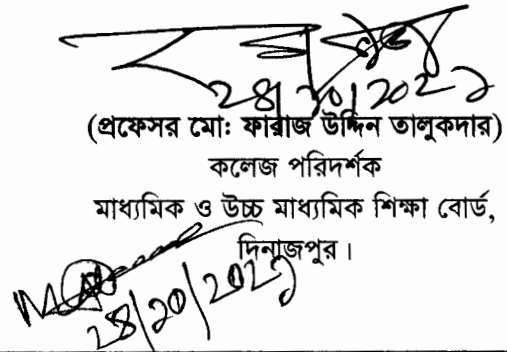 ২৪/১০/২০২১
(প্রফেসর মো: ফারাজ উদ্দিন তালুকদার)
কলেজ পরিদর্শক
মাধ্যমিক ও উচ্চ মাধ্যমিক শিক্ষা বোর্ড,
দিনাজপুর।
২৪/১০/২০২১